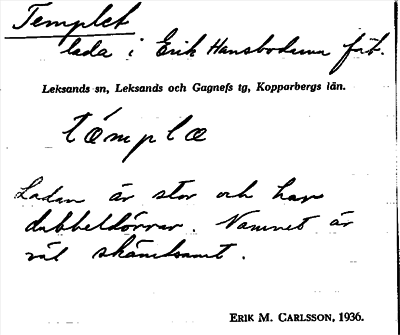 Templet
lada i Erik Hansbodarna fäb.
Leksands sn, Leksands och Gagnefs tg, Kopparbergs län.
tǽmplæ
Ladan är stor och har
dubbeldörrar. Namnet är
väl skämtsamt.
ERIK M. CARLSSON, 1936.